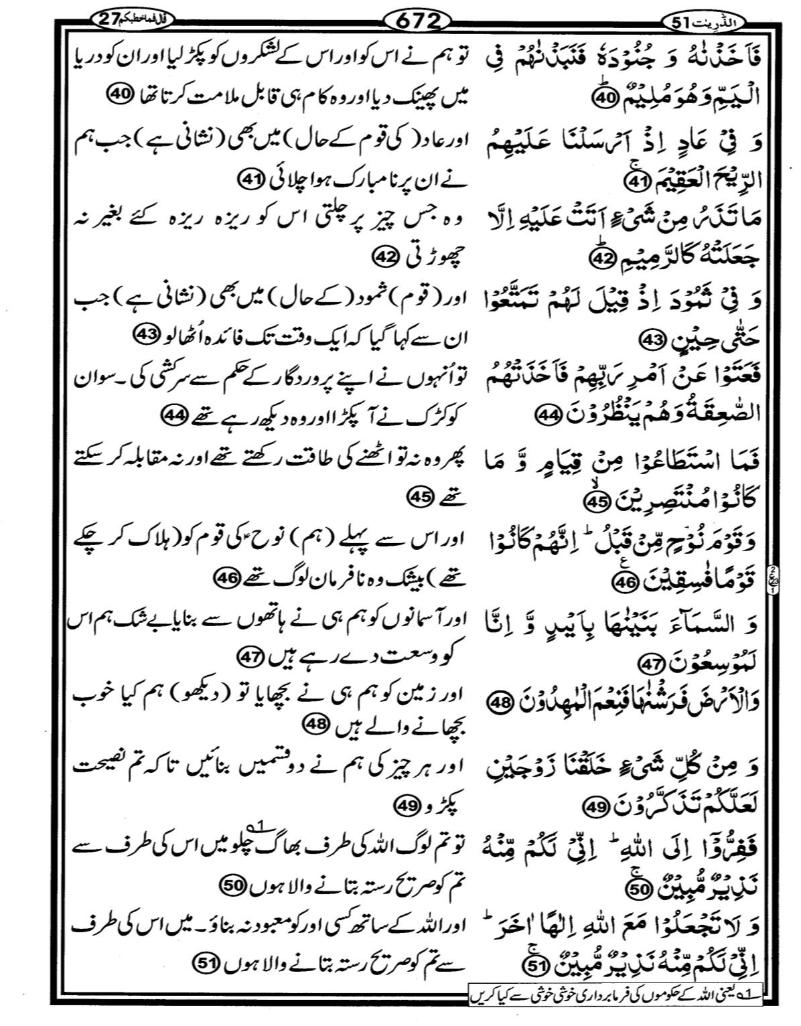 الذّٰریٰت 51
672
قال فما خطبکم 27
فَاَخَذْنٰهُ وَ جُنُوْدَهٗ فَنَبَذْنٰهُمْ فِی
الْیَمِّ وَهُوَ مُلِیْمٌ ؕ 40
وَ فِیْ عَادٍ اِذْ اَرْسَلْنَا عَلَیْهِمُ
الرِّیْحَ الْعَقِیْمَ ۚ 41
مَا تَذَرُ مِنْ شَیْءٍ اَتَتْ عَلَیْهِ اِلَّا
جَعَلَتْهُ كَالرَّمِیْمِ ؕ 42
وَ فِیْ ثَمُوْدَ اِذْ قِیْلَ لَهُمْ تَمَتَّعُوْا
حَتّٰی حِیْنٍ 43
فَعَتَوْا عَنْ اَمْرِ رَبِّهِمْ فَاَخَذَتْهُمُ
الصّٰعِقَةُ وَهُمْ یَنْظُرُوْنَ 44
فَمَا اسْتَطَاعُوْا مِنْ قِیَامٍ وَّ مَا
كَانُوْا مُنْتَصِرِیْنَ ۙ 45
وَ قَوْمَ نُوْحٍ مِّنْ قَبْلُ ؕ اِنَّهُمْ كَانُوْا
قَوْمًا فٰسِقِیْنَ ۧ 46
وَ السَّمَآءَ بَنَیْنٰهَا بِاَیْىدٍ وَّ اِنَّا
لَمُوْسِعُوْنَ 47
وَالْاَرْضَ فَرَشْنٰهَا فَنِعْمَ الْمٰهِدُوْنَ 48
وَ مِنْ كُلِّ شَیْءٍ خَلَقْنَا زَوْجَیْنِ
لَعَلَّكُمْ تَذَكَّرُوْنَ 49
فَفِرُّوْۤا اِلَی اللّٰهِ ؕ اِنِّیْ لَكُمْ مِّنْهُ
نَذِیْرٌ مُّبِیْنٌ ۚ 50
وَ لَا تَجْعَلُوْا مَعَ اللّٰهِ اِلٰهًا اٰخَرَ ؕ
اِنِّیْ لَكُمْ مِّنْهُ نَذِیْرٌ مُّبِیْنٌ ۚ 51
تو ہم نے اس کو اور اس کے لشکروں کو پکڑ لیا اور ان کو دریا
میں پھینک دیا اور وہ کام ہی قابل ملامت کرتا تھا 40
اور عاد( کی قوم کے حال) میں بھی (نشانی ہے) جب ہم
نے ان پر نامبارک ہوا چلائی 41
وہ جس چیز پر چلتی اس کو ریزہ ریزہ کئے بغیر نہ
چھوڑتی 42
اور (قوم) ثمود (کے حال) میں بھی (نشانی ہے) جب
ان سے کہا گیا کہ ایک وقت تک فائدہ اُٹھالو 43
تو اُنہوں نے اپنے پروردگار کے حکم سے سرکشی کی۔ سو ان
کو کڑک نے آ پکڑا اور وہ دیکھ رہے تھے 44
پھر وہ نہ تو اٹھنے کی طاقت رکھتے تھے اور نہ مقابلہ کر سکتے
تھے 45
اور اس سے پہلے (ہم) نوح ؑ کی قوم کو (ہلاک کر چکے
تھے) بیشک وہ نافرمان لوگ تھے 46
اور آسمانوں کو ہم ہی نے ہاتھوں سے بنایا بے شک ہم اس
کو وسعت دے رہے ہیں 47
اور زمین کو ہم ہی نے بچھایا تو (دیکھو) ہم کیا خوب
بچھانے والے ہیں 48
اور ہر چیز کی ہم نے دو قسمیں بنائیں تاکہ تم نصیحت
پکڑو 49
تو تم لوگ اللہ کی طرف بھاگ چلو 1؎ میں اس کی طرف سے
تم کو صریح رستہ بتانے والا ہوں 50
اور اللہ کے ساتھ کسی اور کو معبود نہ بناؤ۔ میں اس کی طرف
سے تم کو صریح رستہ بتانے والا ہوں 51
1؎ یعنی اللہ کے حکوموں کی فرمابرداری خوشی خوشی سے کیا کریں